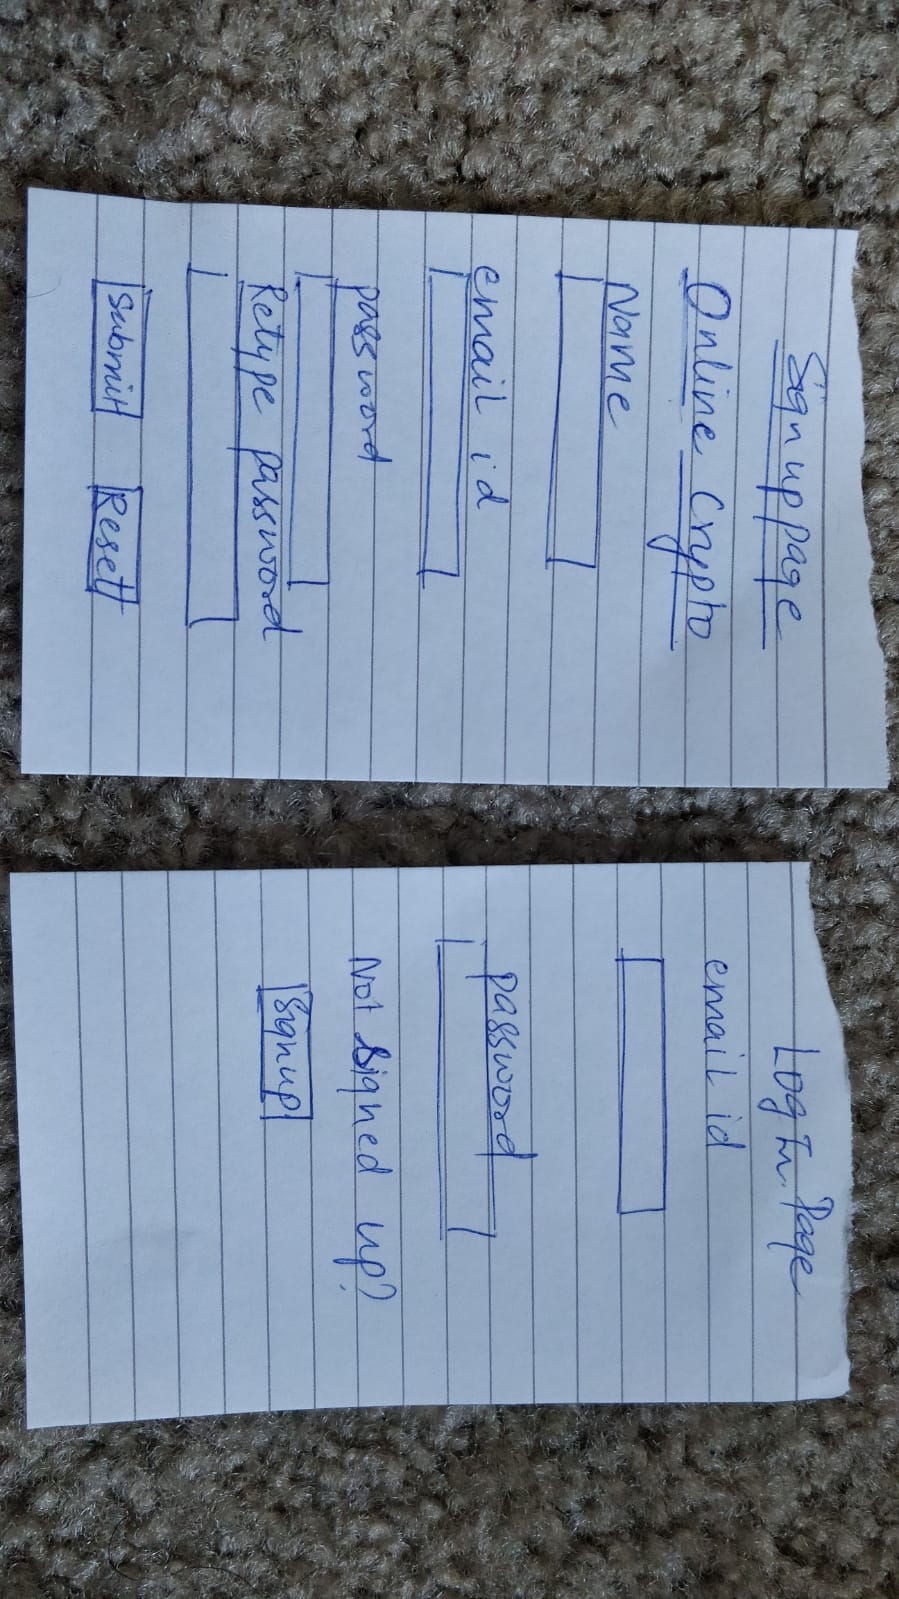 Sign up page
Online Crypto
Name
email id
password
Retype password
Submit Reset
Log In Page
email id
password
Not Signed up?
Signup